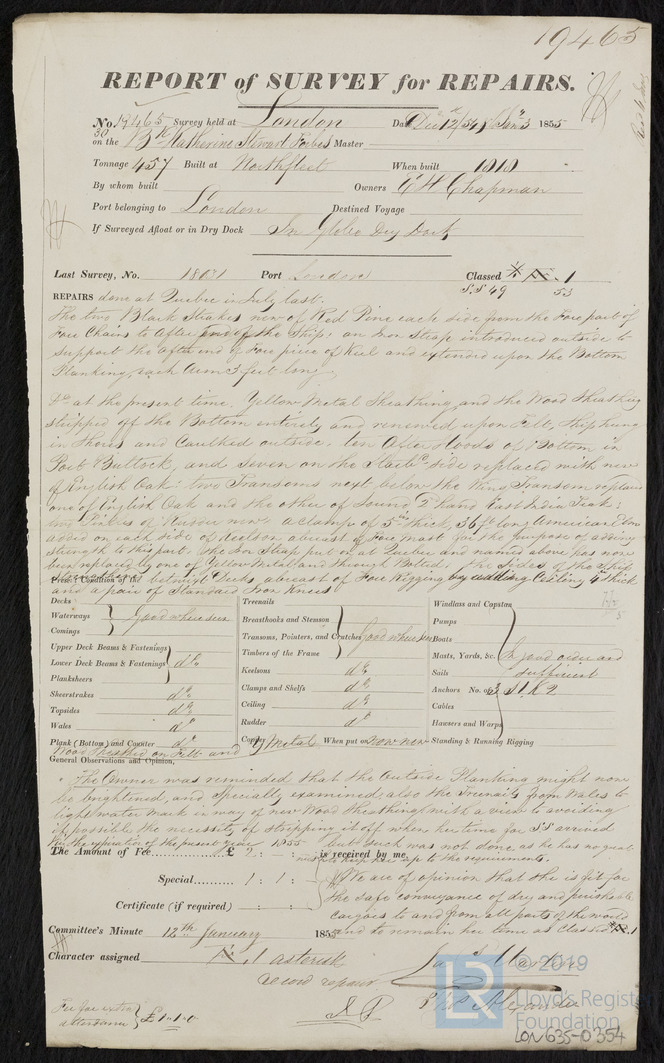 19465
REPORT of SURVEY for REPAIRS.
No. 19465 Survey held at London Date Decr 12/54 & Jany 3 1855
on the Bk Katherine Stewart Forbes Master
Tonnage 457 Built at Northfleet When built 1818
By whom built Owners Chapman
Port belonging to London Destined Voyage
If Surveyed Afloat or in Dry Dock In Globe Dry Dock
Last Survey, No. 18631 Port London Classed Æ 1
S.S 49 53
REPAIRS done at Quebec in July last.
The two Black Strakes new of Red Pine each side from the Fore part of
Fore Chains to After end of the Ship: an Iron Strap introduced outside to
support the after end of Fore piece of Keel and extended upon the Bottom
Planking, each Arm 3 feet long
Do at the present time. Yellow Metal Sheathing and the Wood Sheathing
stripped off the Bottom entirely and renewed upon Felt, Ship hung
in Shores and Caulked outside. ten After Hoods of Bottom in
Port Buttock, and Seven on the Starbd side replaced with new
of English Oak: two Transoms next below the Wing Transom replaced
one of English Oak and the other of Sound 2d hand East India Teak:
two new a clamp of 5 ins thick, 36 ft long American Elm
added on each side of Keelson abreast of Fore Mast for the purpose of adding
strength to this part. The Iron Strap put on at Quebec and named above has now
been replaced by one of Yellow Metal and through Bolted. the Sides of the Ship
betwixt Decks abreast of Fore Rigging by adding Ceiling 4 thick
and a pair of Standard Iron Knees
Present Condition of the
Decks
Waterways Good where seen
Comings
Upper Deck Beams & Fastenings
Lower Deck Beams & Fastenings do
Planksheers
Sheerstrakes do
Topsides do
Wales do
Plank (Bottom) and Counter do
Treenails
Breasthooks and Stemson
Transoms, Pointers, and Crutches Good where seen
Timbers of the Frame
Keelsons do
Clamps and Shelfs do
Ceiling do
Rudder do
Copper Y Metal When put on Now new
Wood Sheathed on Felt and
Windlass and Capstan
Pumps
Boats
Masts, Yards, &c. In good order and
Sails sufficient
Anchors No. of 3, S 1 K 2
Cables
Hawsers and Warps
Standing & Running Rigging
General Observations and Opinion,
The Owner was reminded that the outside Planking might now
be brightened, and Specially examined also the Treenails from Wales to
light water mark in way of new Wood Sheathing with a view to avoiding
if possible the necessity of stripping it off when her time for S S arrived
in the expiration of the present year 1855 but such was not done as he has no great
her up to the requirements.
The Amount of Fee £ 2 : - : - is received by me,
Special 1 : 1 : -
Certificate (if required)
We are of opinion that she is fit for
the safe conveyance of dry and perishable
cargoes to and from all parts of the world
and to remain her time as Classed Æ 1
Committee's Minute 12th January 1855
Character assigned Æ 1 asterisk
record repairs
Fee for extra
attendance £1.1.0
© 2019
LR
Lloyd's Register
Foundation
LON635-0354